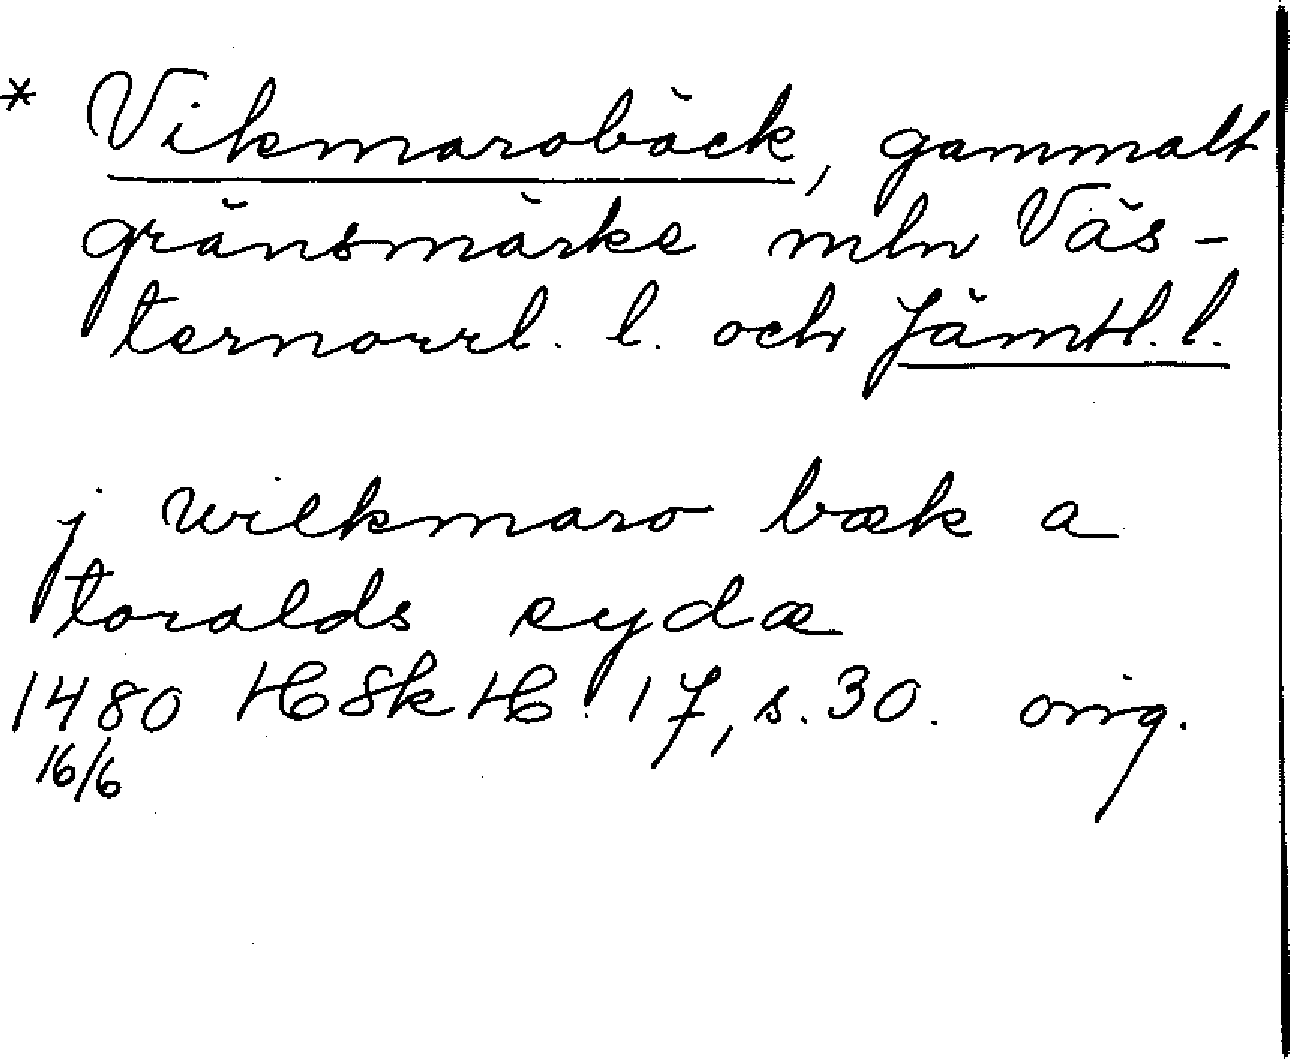 * Vikmarobäck, gammalt
gränsmärke mln Väs-
ternorrl. l. och Jämtl. l.
j wilkmaro bæk a
toralds eydæ
1480 HSkH 17, s. 30. orig.
16/6